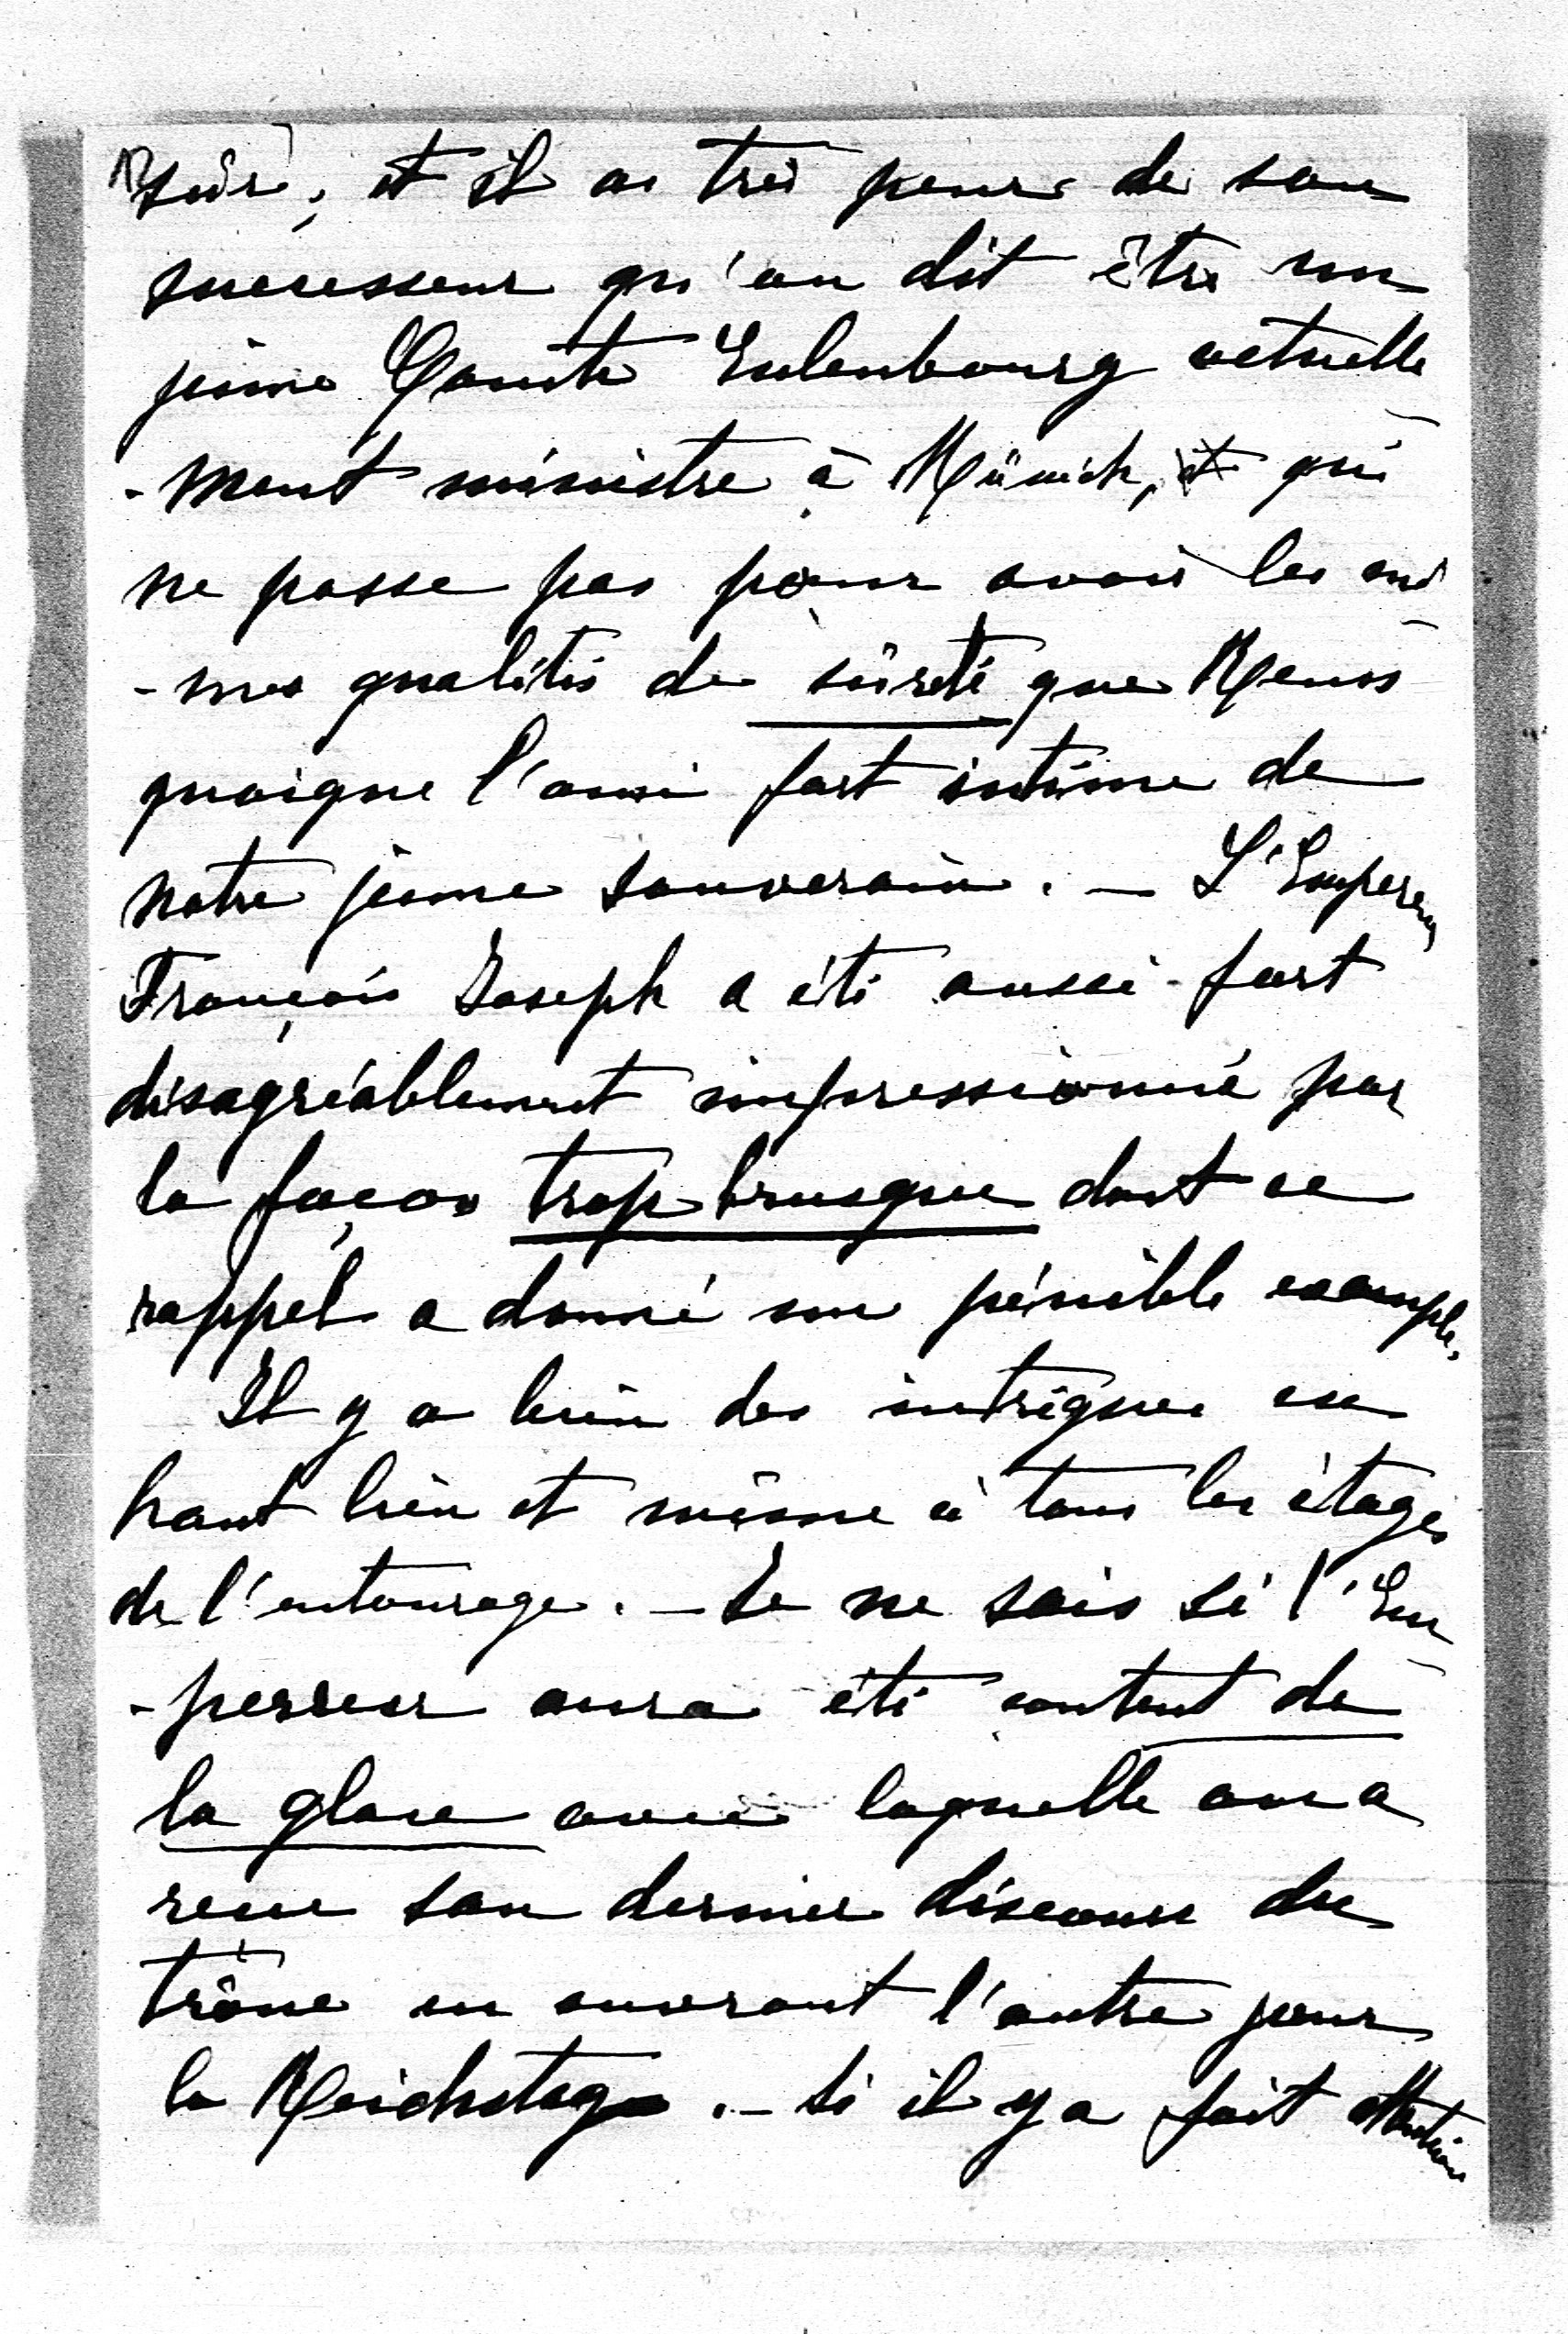 sûr, et il a très peur de son
successeur qu'on dit être un
jeune Comte Eulenbourg actuelle
-ment ministre à Münich, qui
ne passe pas pour avoir les mê
-mes qualités de sûreté que Reuss
quoique l'ami fort intime de
notre jeune souverain. — L'Empereur
François Joseph a été aussi fort
désagréablement impressionné par
la façon trop brusque dont ce
rappel a donné un pénible exemple.
Il y a bien des intrigues en
haut lieu et même à tous les étages
de l'entourage. — Je ne sais si l'Em
-pereur aura été content de
la glace avec laquelle on a
reçu son dernier discours du
trône en ouvrant l'autre jour
le Reichstag. — Si il y a fait attention